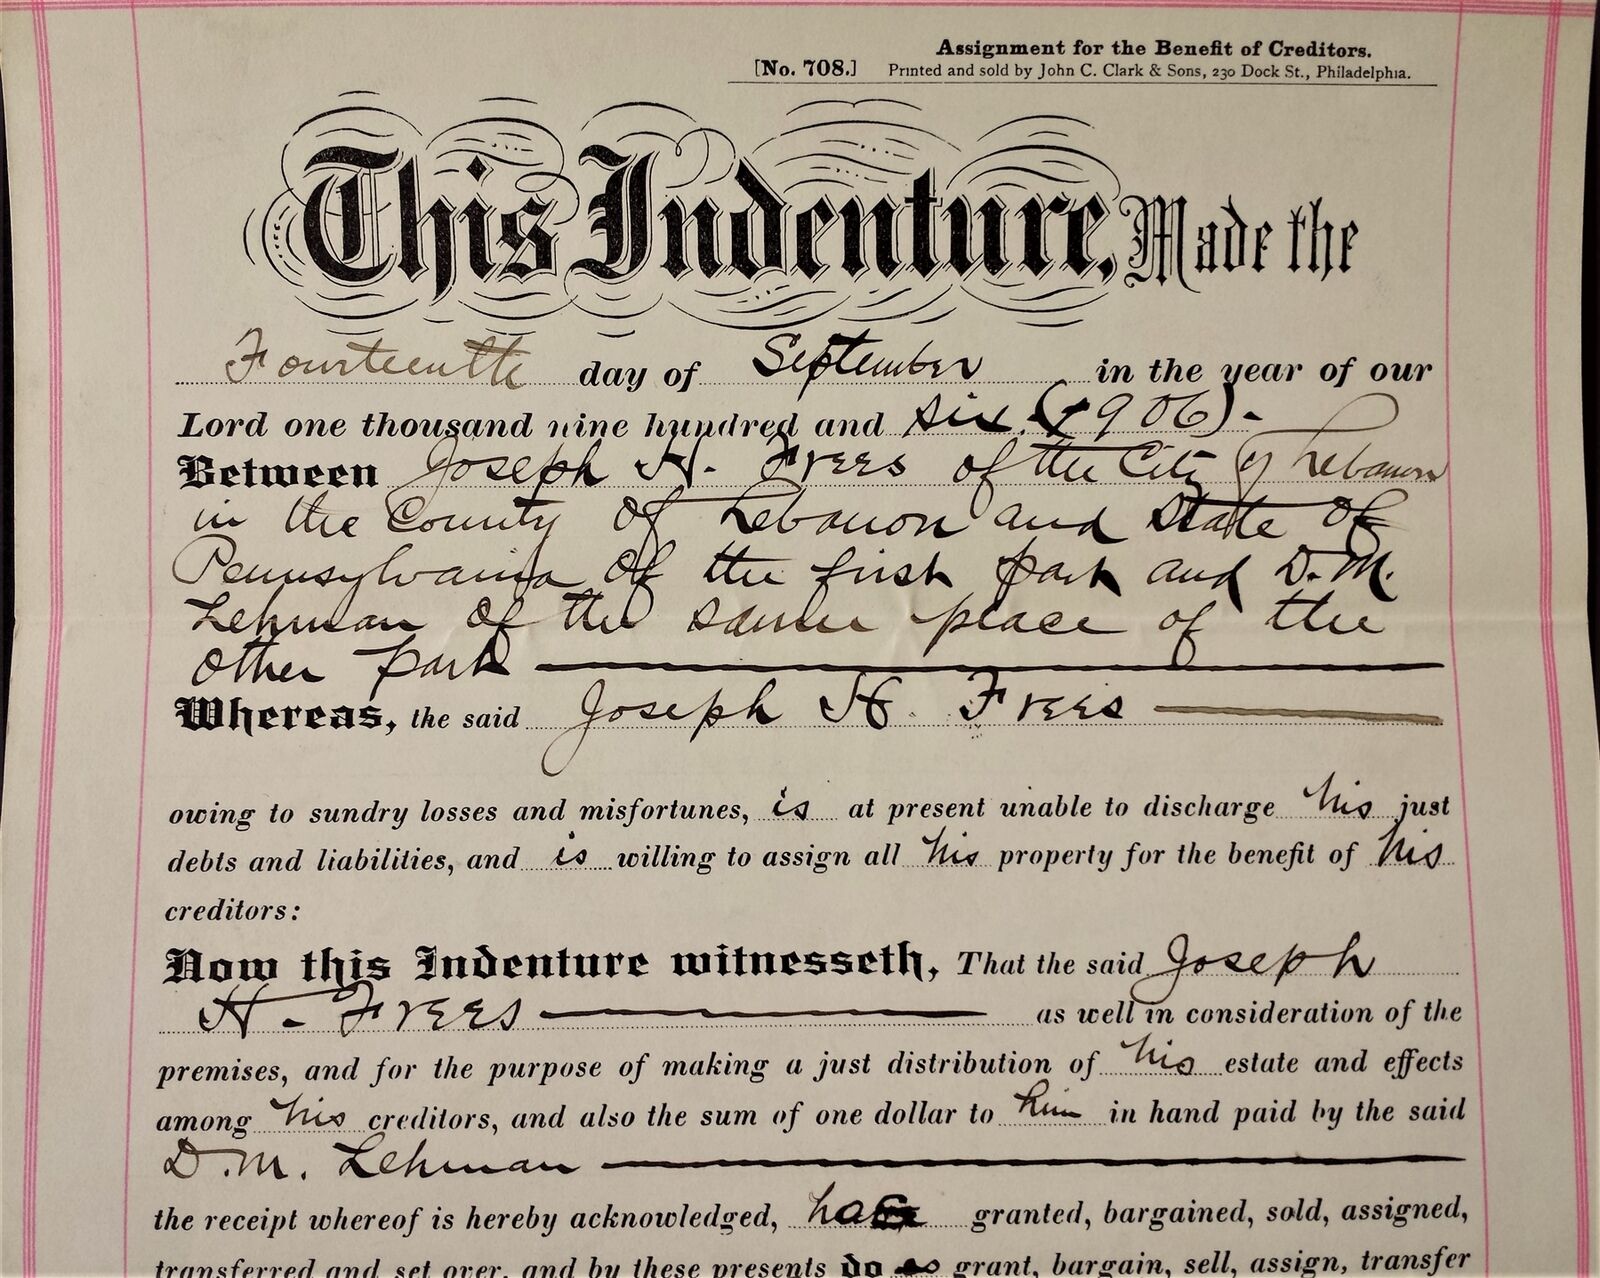 Assignment for the Benefit of Creditors.
[No. 708.] Printed and sold by John C. Clark & Sons, 230 Dock St., Philadelphia.
This Indenture, Made the
Fourteenth day of September in the year of our
Lord one thousand nine hundred and six (1906).-
Between Joseph H. Frees of the City of Lebanon
in the County of Lebanon and State of
Pennsylvania of the first part and D.M.
Lehman of the same place of the
other part
Whereas, the said Joseph H. Frees
owing to sundry losses and misfortunes, is at present unable to discharge his just
debts and liabilities, and is willing to assign all his property for the benefit of his
creditors:
Now this Indenture witnesseth, That the said Joseph
H. Frees as well in consideration of the
premises, and for the purpose of making a just distribution of his estate and effects
among his creditors, and also the sum of one dollar to him in hand paid by the said
D.M. Lehman
the receipt whereof is hereby acknowledged, has granted, bargained, sold, assigned,
transferred and set over, and by these presents do es grant, bargain, sell, assign, transfer